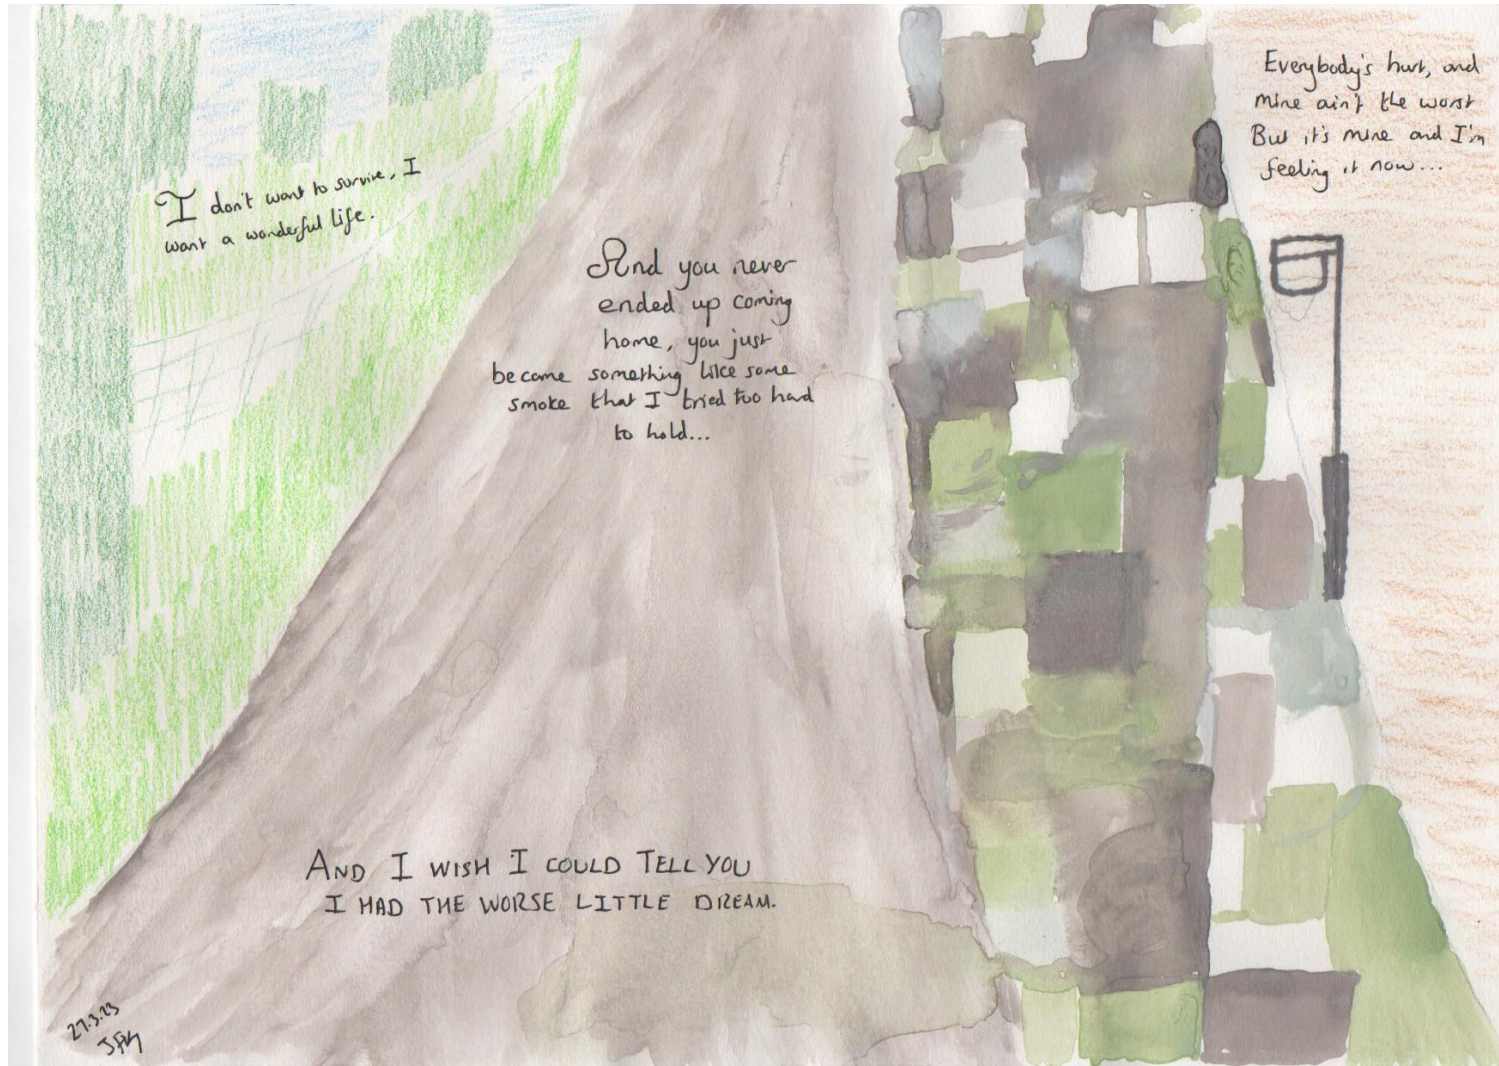 I don't want to survive, I
want a wonderful life.
And you never
ended up coming
home, you just
became something like some
smoke that I tried too hard
to hold...
Everybody's hurt, and
mine ain't the worst
But it's mine and I'm
feeling it now...
AND I WISH I COULD TELL YOU
I HAD THE WORSE LITTLE DREAM.
27.3.23